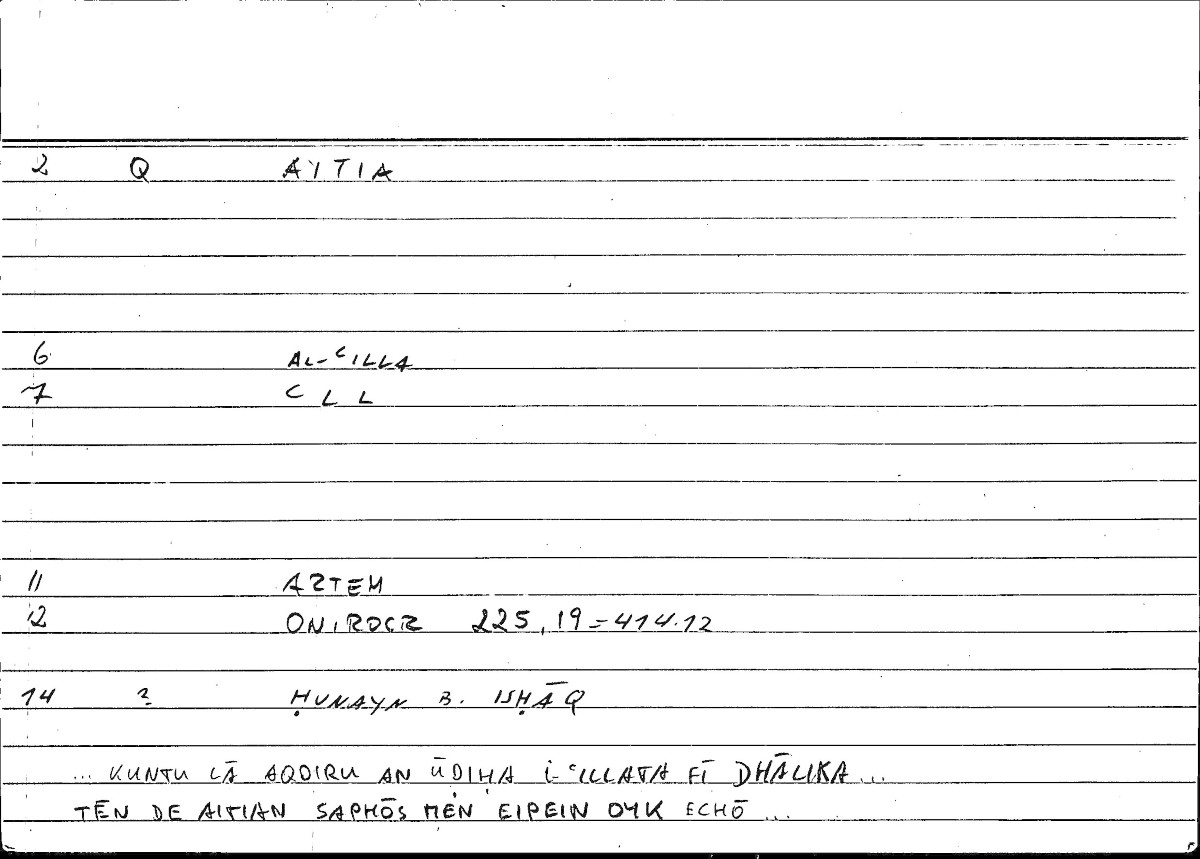 2 Q AITIA
6 AL-ʿILLA
7 ʿ L L
11 ARTEM
12 ONIROCR 225,19=414.12
14 ? ḤUNAYN B. ISḤĀQ
... KUNTU LĀ AQDIRU AN ŪDIḤA L-ʿILLATA FĪ DHĀLIKA ...
TĒN DE AITIAN SAPHŌS MEN EIPEIN OYK ECHŌ ...